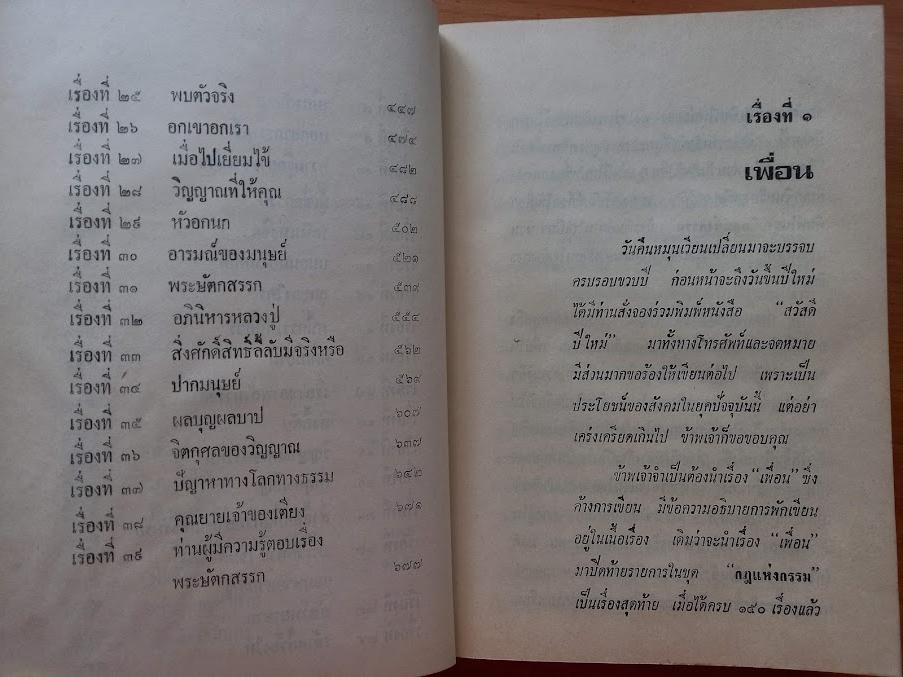 เรื่องที่ ๒๕ พบตัวจริง ๔๔๗
เรื่องที่ ๒๖ อกเขาอกเรา ๔๗๔
เรื่องที่ ๒๗ เมื่อไปเยี่ยมไข้ ๔๘๒
เรื่องที่ ๒๘ วิญญาณที่ให้คุณ ๔๘๘
เรื่องที่ ๒๙ หัวอกนก ๕๐๒
เรื่องที่ ๓๐ อารมณ์ของมนุษย์ ๕๒๑
เรื่องที่ ๓๑ พระษัตกสรรก ๕๓๙
เรื่องที่ ๓๒ อภินิหารหลวงปู่ ๕๕๔
เรื่องที่ ๓๓ สิ่งศักดิ์สิทธิ์ลี้ลับมีจริงหรือ ๕๖๒
เรื่องที่ ๓๔ ปากมนุษย์ ๕๖๙
เรื่องที่ ๓๕ ผลบุญผลบาป ๖๐๗
เรื่องที่ ๓๖ จิตกุศลของวิญญาณ ๖๓๗
เรื่องที่ ๓๗ ปัญหาทางโลกทางธรรม ๖๔๒
เรื่องที่ ๓๘ คุณยายเจ้าของเตียง ๖๗๑
เรื่องที่ ๓๙ ท่านผู้มีความรู้ตอบเรื่อง
พระษัตกสรรก ๖๗๗
เรื่องที่ ๑
เพื่อน
วันคืนหมุนเวียนเปลี่ยนมาจะบรรจบ
ครบรอบขวบปี ก่อนหน้าจะถึงวันขึ้นปีใหม่
ได้มีท่านสั่งจองร่วมพิมพ์หนังสือ "สวัสดี
ปีใหม่" มาทั้งทางโทรศัพท์และจดหมาย
มีส่วนมากขอร้องให้เขียนต่อไป เพราะเป็น
ประโยชน์ของสังคมในยุคปัจจุบันนี้ แต่อย่า
เคร่งเครียดเกินไป ข้าพเจ้าก็ขอขอบคุณ
ข้าพเจ้าจำเป็นต้องนำเรื่อง "เพื่อน" ซึ่ง
ค้างการเขียน มีข้อความอธิบายการพักเขียน
อยู่ในเนื้อเรื่อง เดิมว่าจะนำเรื่อง "เพื่อน"
มาปิดท้ายรายการในชุด "กฎแห่งกรรม"
เป็นเรื่องสุดท้าย เมื่อได้ครบ ๑๕๐ เรื่องแล้ว